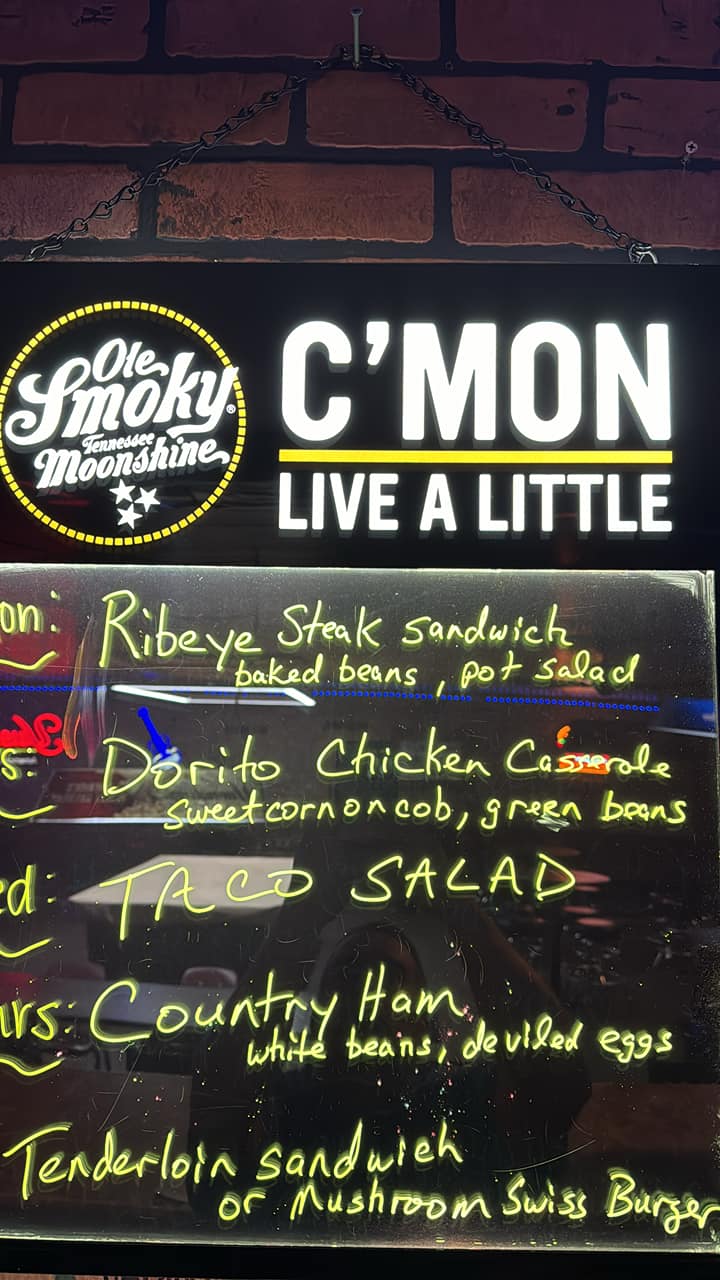 Ole
Smoky®
Tennessee
Moonshine
C'MON
LIVE A LITTLE
on: Ribeye Steak sandwich
baked beans, pot salad
s: Dorito Chicken Casserole
sweet corn on cob, green beans
ed: TACO SALAD
urs: Country Ham
white beans, deviled eggs
Tenderloin sandwich
or Mushroom Swiss Burger